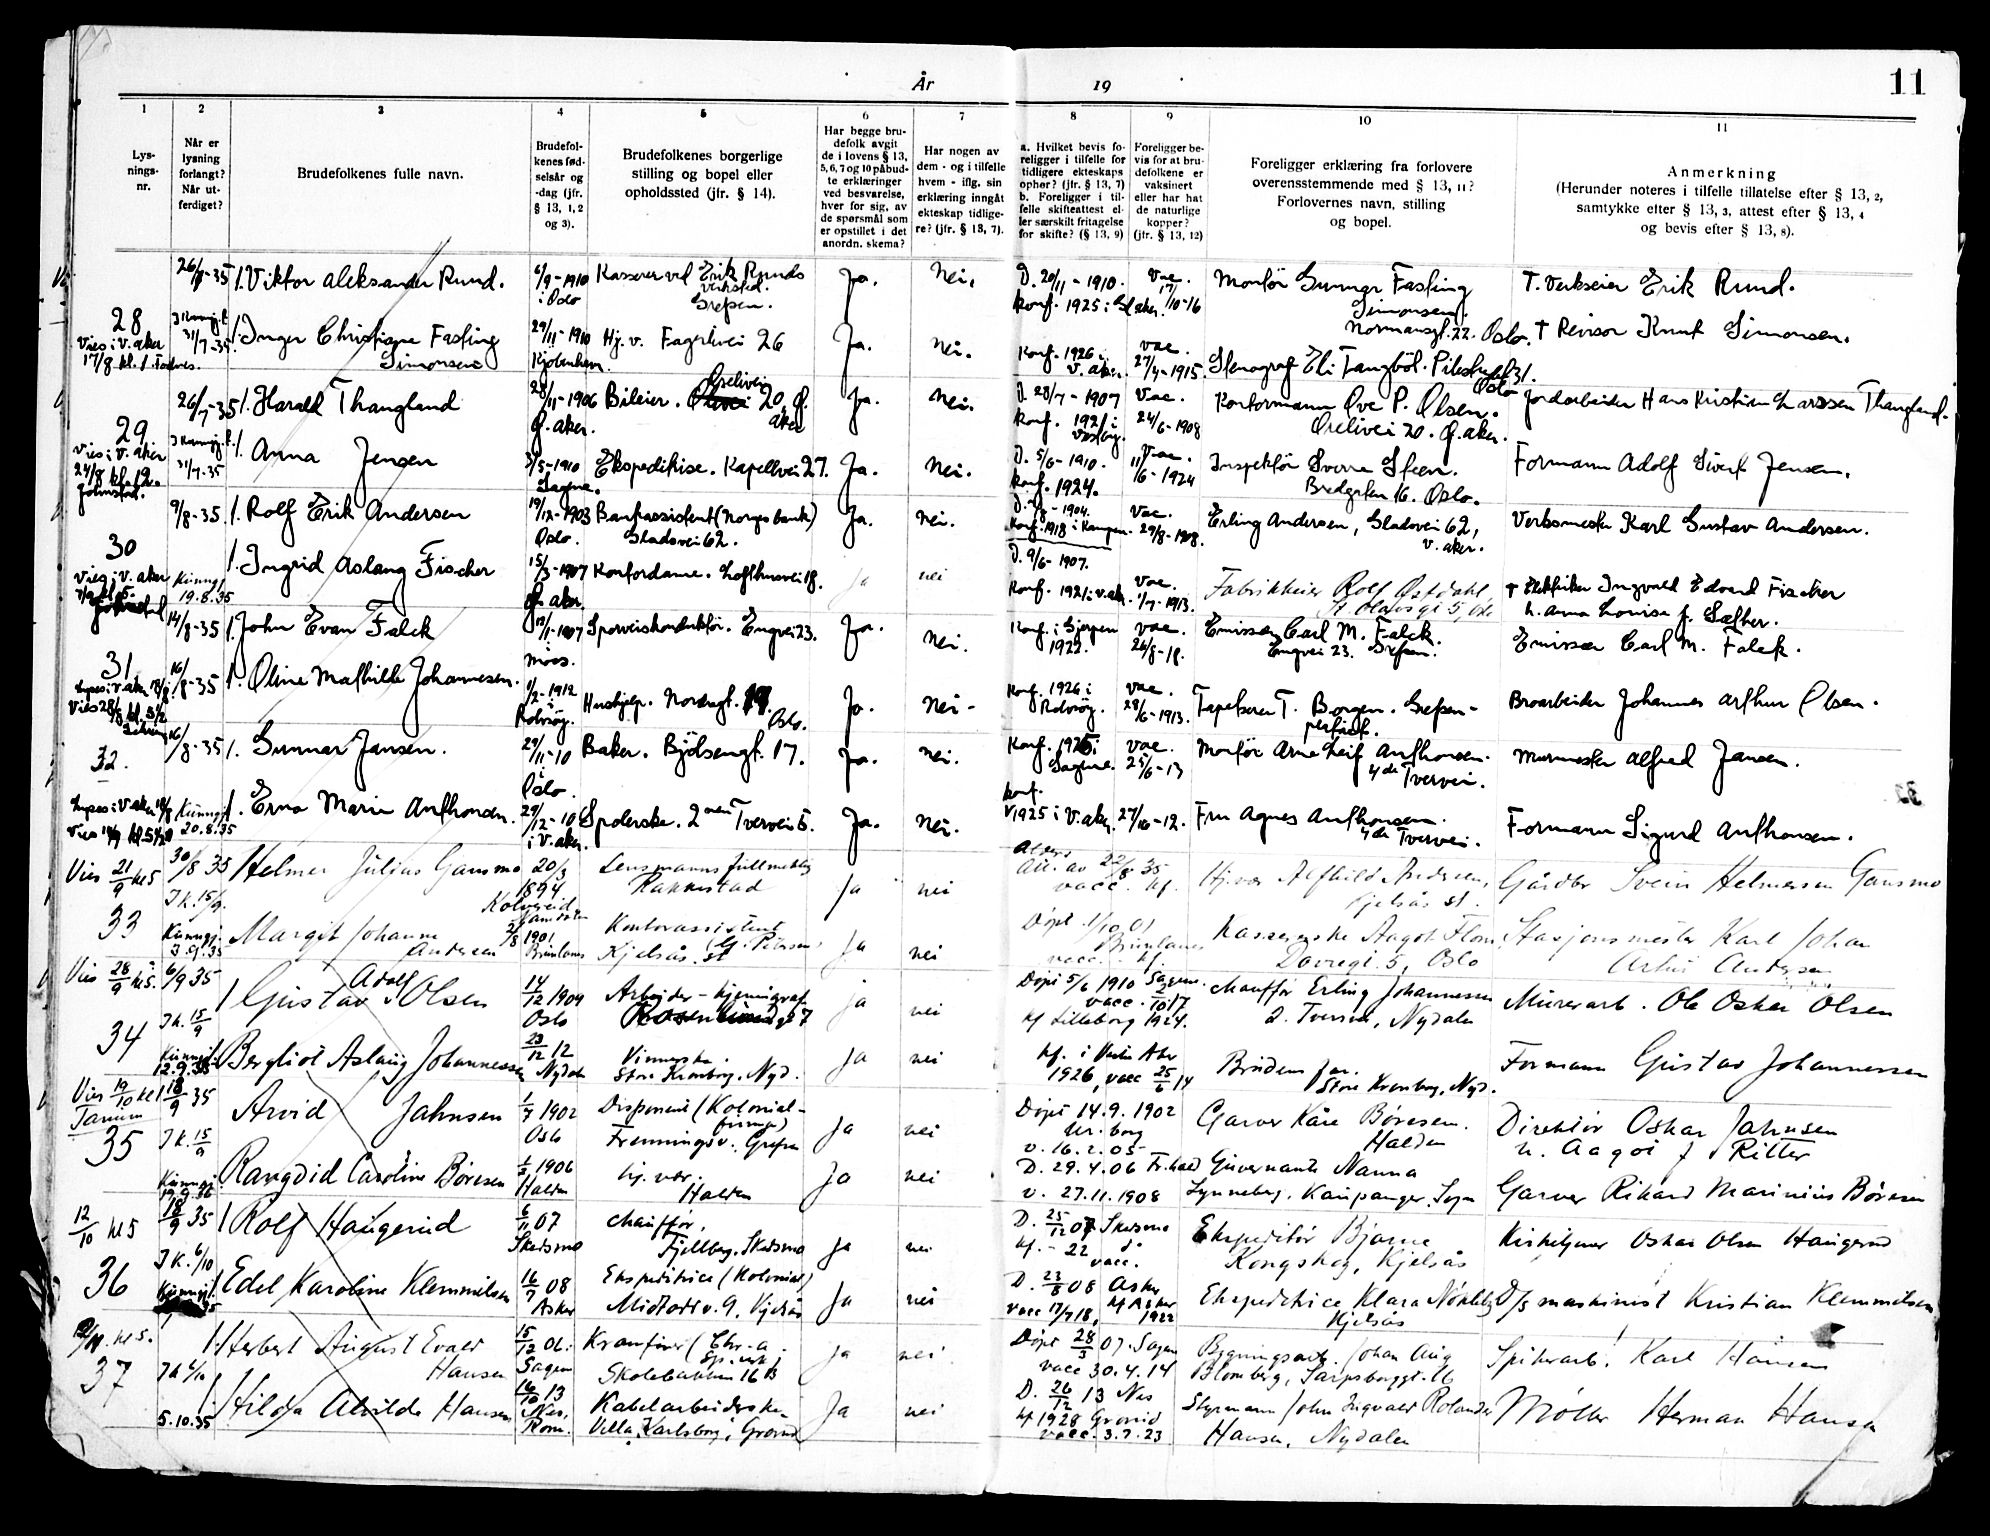 År 19
11
1 2 3 4 5 6 7 8 9 10 11
Lys-
nings-
nr.
Når er
lysning
forlangt?
Når ut-
ferdiget?
Brudefolkenes fulle navn.
Brudefol-
kenes fød-
selsår og
-dag (jfr.
§ 13, 1, 2
og 3).
Brudefolkenes borgerlige
stilling og bopel eller
opholdssted (jfr. § 14).
Har begge bru-
defolk avgit
de i lovens § 13,
5, 6, 7 og 10 påbud-
te erklæringer
ved besvarelse,
hver for sig, av
de spørsmål som
er opstillet i det
anordn. skema?
Har nogen av
dem - og i tilfelle
hvem - iflg. sin
erklæring inngått
ekteskap tidlige-
re? (jfr. § 13, 7).
a. Hvilket bevis fo-
religger i tilfelle for
tidligere ekteskaps
ophør? (jfr. § 13, 7)
b. Foreligger i til-
felle skifteattest el-
ler særskilt fritagelse
for skifte? (§ 13, 9)
Foreligger be-
vis for at bru-
defolkene er
vaksinert
eller har hat
de naturlige
kopper?
(jfr. § 13, 12)
Foreligger erklæring fra forlovere
overensstemmende med § 13, 11?
Forlovernes navn, stilling
og bopel.
Anmerkning
(Herunder noteres i tilfelle tillatelse efter § 13, 2,
samtykke efter § 13, 3, attest efter § 13, 4
og bevis efter § 13, 8).
28
Vies i V. aker
17/8 kl. 1.
Viktor Aleksander Rund.
6/9-1910
i Oslo
Kasserer ved Erik Runds
verksted.
Grefsen.
Ja.
Nei.
D. 20/11-1910.
Konf. 1925 i Gl. aker.
Vac.
17/10-16
Montør Gunnar Fasting
Simonsen
Normannsgt. 22. Oslo.
† Verkseier Erik Rund.
31/7-35.
Inger Christiane Fasting
Simonsen
29/11-1910
Kjøbenhavn.
Hj. v. Fagerlivei 26
Ja.
Nei.
Konf. 1926 i
V. aker.
Vac.
27/4-1915.
Stenograf Eli Tangbøl.
Oslo
† Revisor Knut Simonsen.
29
Vies i V. aker
24/8 kl. 12.
26/7-35
Harald Thangland
28/11-1906
Ø. aker.
Bileier. Ørelivei 20, Ø.
aker
Ja.
Nei.
D. 28/7-1907
Konf. 1921 i
Vac.
24/6-1908
Kontormann Ove P. Olsen.
Ørelivei 20. Ø. aker.
Jordarbeider Hans Kristian Larssen Thangland.
31/7-35
Anna Jensen
3/5-1910
Sagene.
Ekspeditrise. Kapellvei 27.
Ja.
Nei.
D. 5/6-1910.
Konf. 1924.
Vac.
11/6-1924
Inspektør Sverre Steen.
Bredgaten 16. Oslo.
Formann Adolf Sivert Jensen.
30
Vies i V. aker
9/8-35
Rolf Erik Andersen
19/12-1903
Oslo.
Bankassistent (Norges bank)
Gladsvei 62.
Ja.
Nei.
Vac.
29/8-1908.
Erling Andersen, Gladsvei 62,
V. aker.
Verksmester Karl Gustav Andersen.
Kunngj.
19.8.35
Ingrid Aslaug Fischer
15/3-1907
Ø. aker.
Kontordame. Lofthusvei 18.
Ja
nei
D. 9/6-1907.
Konf. 1921 i V. aker.
Vac.
1/7-1913.
Fabrikkeier Rolf Østdahl,
St. Olavsgt 5, Oslo
† Elektriker Ingvald Edvard Fischer
h. Anna Lovise f. Sæther.
31
14/8-35
John Evan Falck
Moss.
Sporveiskonduktør. Engvei 23.
Ja.
Nei.
Konf. i Gjerpen
1922.
Vac.
26/8-18.
Emissær Carl M. Falck.
Engvei 23. Grefsen.
Emissær Carl M. Falck.
16/8-35
Oline Mathilde Johannesen.
1/2-1912
i
Rolvsøy.
Hushjelp. Nordregt.
Oslo.
Ja.
Nei-
Konf. 1926 i
Rolvsøy.
Vac.
28/6-1913.
Tapetserer T. Borgen. Grefsen-
Broarbeider Johannes Arthur Olsen.
32.
16/8-35
Gunnar Jansen.
29/11-10
i
Oslo.
Baker. Bjølsengt. 17.
Ja.
Nei.
Konf. 1925 i
Sagene.
Vac.
25/6-13
Montør Arne Leif Anthonsen.
4de Tvervei.
Murmester Alfred Jansen.
Kunngj.
20.8.35
Erna Marie Anthonsen.
29/12-10
i V. aker.
Spolerske. 2nen Tvervei 5.
Ja.
Nei.
Konf.
1925 i V. aker.
27/10-12.
Fru Agnes Anthonsen.
4de Tvervei.
Formann Sigurd Anthonsen.
33
Vies 21/9 kl 5
30/8 35
Helmer Julius Gansmo
20/3
1894
Kolvereid
Namdalen
Lensmannsfullmektig
Rakkestad
Ja
nei
22/8 35
vacc. kf.
Hj. vær. Alfhild Andersen,
Kjelsås st.
Gårdbr Svein Helmersen Gansmo
Kunngj.
3.9.35
Margit Johanne
Andersen
2/8 1901
Kontorassistent
Kjelsås st
Ja
nei
Døpt 1/10 01
vacc. kf.
Kassererske Aagot Flom,
Dovregt. 5, Oslo
Stasjonsmester Karl Johan
Artur Andersen
34
Vies 28/9 kl 5.
6/9 35
I k. 15/9
Gustav Adolf Olsen
14/12 1909
Oslo
Arbeider -
ja
nei
Døpt 5/6 1910 Sagene
vacc. 2/10 17
kf Lilleborg 1924.
Chauffør Erling Johannessen
2. Tverrvei, Nydalen
Murerarb. Ole Oskar Olsen
Kunngj.
12.9.35
Bergliot Aslaug Johannessen
23/12 12
Nydalen
Store Kronborg, Nyd.
Ja
nei
kf. i Vestre Aker
1926, vacc 25/6 14
Brudens far.
Store Kronborg, Nyd.
Formann Gustav Johannessen
35
Vies 19/10 kl 1
Tanum
18/9 35
I k. 15/9
Arvid Jahnsen
1/7 1902
Oslo
Disponent (Kolonial-
firma)
Frenningsv. Grefsen
Ja
nei
Døpt 14.9.1902
Ur.borg
v. 16.2.05-
Garver Kåre Børesen.
Halden
Direktør Oskar Jahnsen
h. Aagot f Ritter
Kunngj.
Rangdid Caroline Børesen
1906
Halden
hj. vær.
Halden
Ja
nei
D. 29.4.06 Fr.hald
v. 27.11.1908
Guvernante Nanna
Lynneberg, Kaupanger, Sogn
Garver Rikard Marinius Børesen
36
12/10 kl 5
18/9 35
I k. 6/10
Rolf Haugerud
6/11 07
Skedsmo
Chauffør,
Fjellberg, Skedsmo
Ja
nei
D. 25/12 07 Skedsmo
kf. - 22 d.
vacc.
Ekspeditør Bjarne
Kongshag, Kjelsås
Kirketjener Oskar Olsen Haugerud
Kunngj.
Edel Karoline Klemmetsen
16/7 08
Asker
Ekspeditrice (Kolonial)
Midtoddv. 9, Kjelsås
Ja
nei
D. 23/8 08 Asker
vacc 17/7 18, kf Asker
1922
Ekspeditrice Klara Nökleby
Kjelsås
D/s maskinist Kristian Klemmetsen
37
kl 5.
Herbert August Evald
Hansen
15/12 06.
Sagene
Kranfører (Chr-a
Sp.verk)
Skolebakken 16 B
Ja
nei
Døpt 28/3 07. Sagene
vacc 30.4.14
Bygningsarb. Johan Aug
Blomberg, Sarpsborggt. 16
Spikerarb. Karl Hansen
5.10.35
Hilda Alvilde Hansen
16/10 13
Nes,
Rom.
Kabelarbeiderske
Villa Karlsborg, Grorud
Ja
nei
D. 26/12 13 Nes
kf 1928 Grorud
vacc. 3.7.23
Styrmann John Ingvald Rolander
Hansen, Nydalen
Møller Herman Hansen